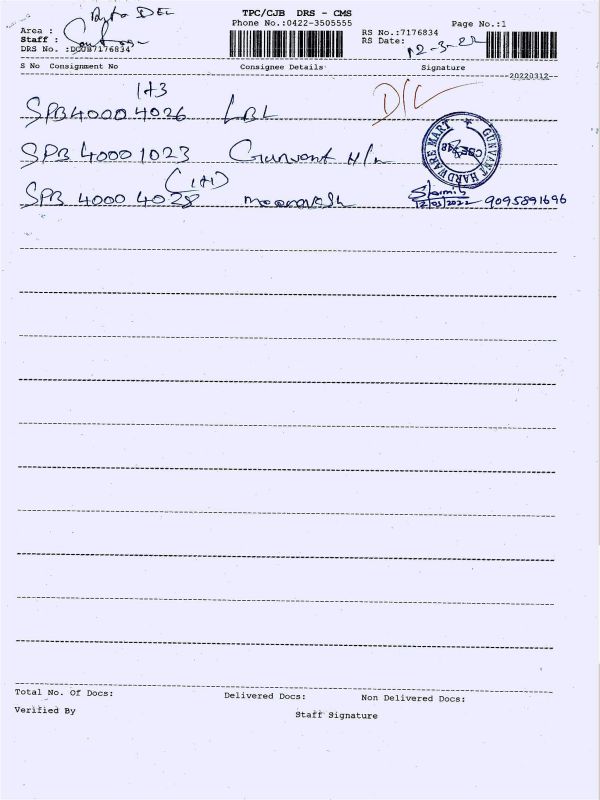 DEL
TPC/CJB DRS - CMS
Phone No.:0422-3505555
Page No.:1
Area :
Staff :
DRS No. :DCUB7176834
RS No.:7176834
RS Date: 12-3-22
S No Consignment No Consignee Details Signature
20220312
1+3
SPB40004026 LBL D/L
SPB 40001023 Gunvant H/w
GUNVANT HARDWARE MART
CBE-18
(1+1)
SPB 4000 4028
12/03/2022 9095891696
Total No. Of Docs: Delivered Docs: Non Delivered Docs:
Verified By Staff Signature